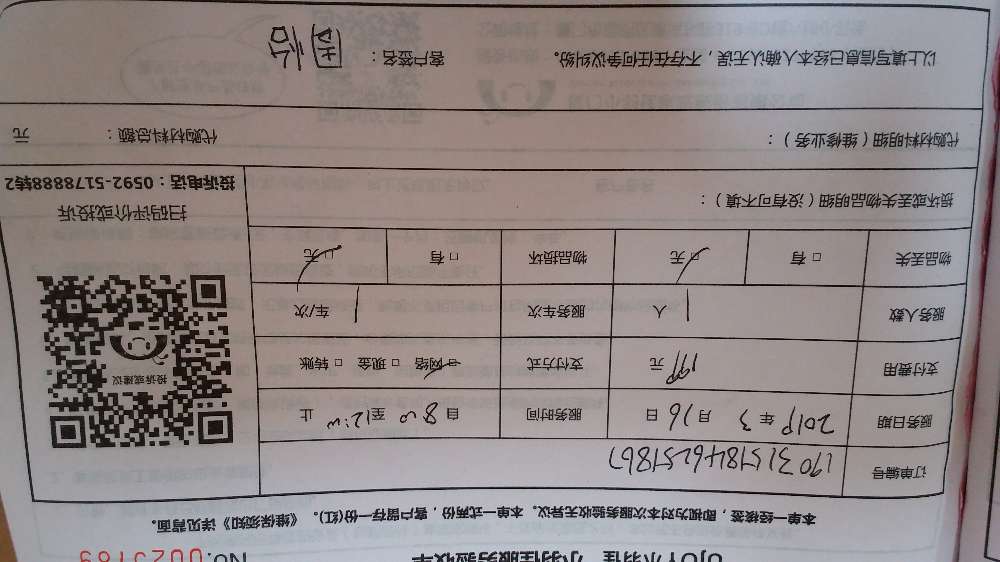 小羽佳服务验收单
No.0025769
本单一经核签,即视为对本次服务验收无异议。本单一式两份,客户留存一份(红)。《维保须知》详见背面。
订单编号
服务日期 2019年3月16日 服务时间 自8:00至12:00止
支付费用 199元 支付方式 □网络 □现金 □转账
服务人数 1人 服务车次 1车/次
物品丢失 □有 □无 物品损坏 □有 □无
投诉或建议
扫码评价或投诉
投诉电话:0592-5178888转2
损坏或丢失物品明细(没有可不填):
代购材料明细(维修业务): 代购材料总额: 元
以上填写信息已经本人确认无误,不存在任何争议纠纷。 客户签名: